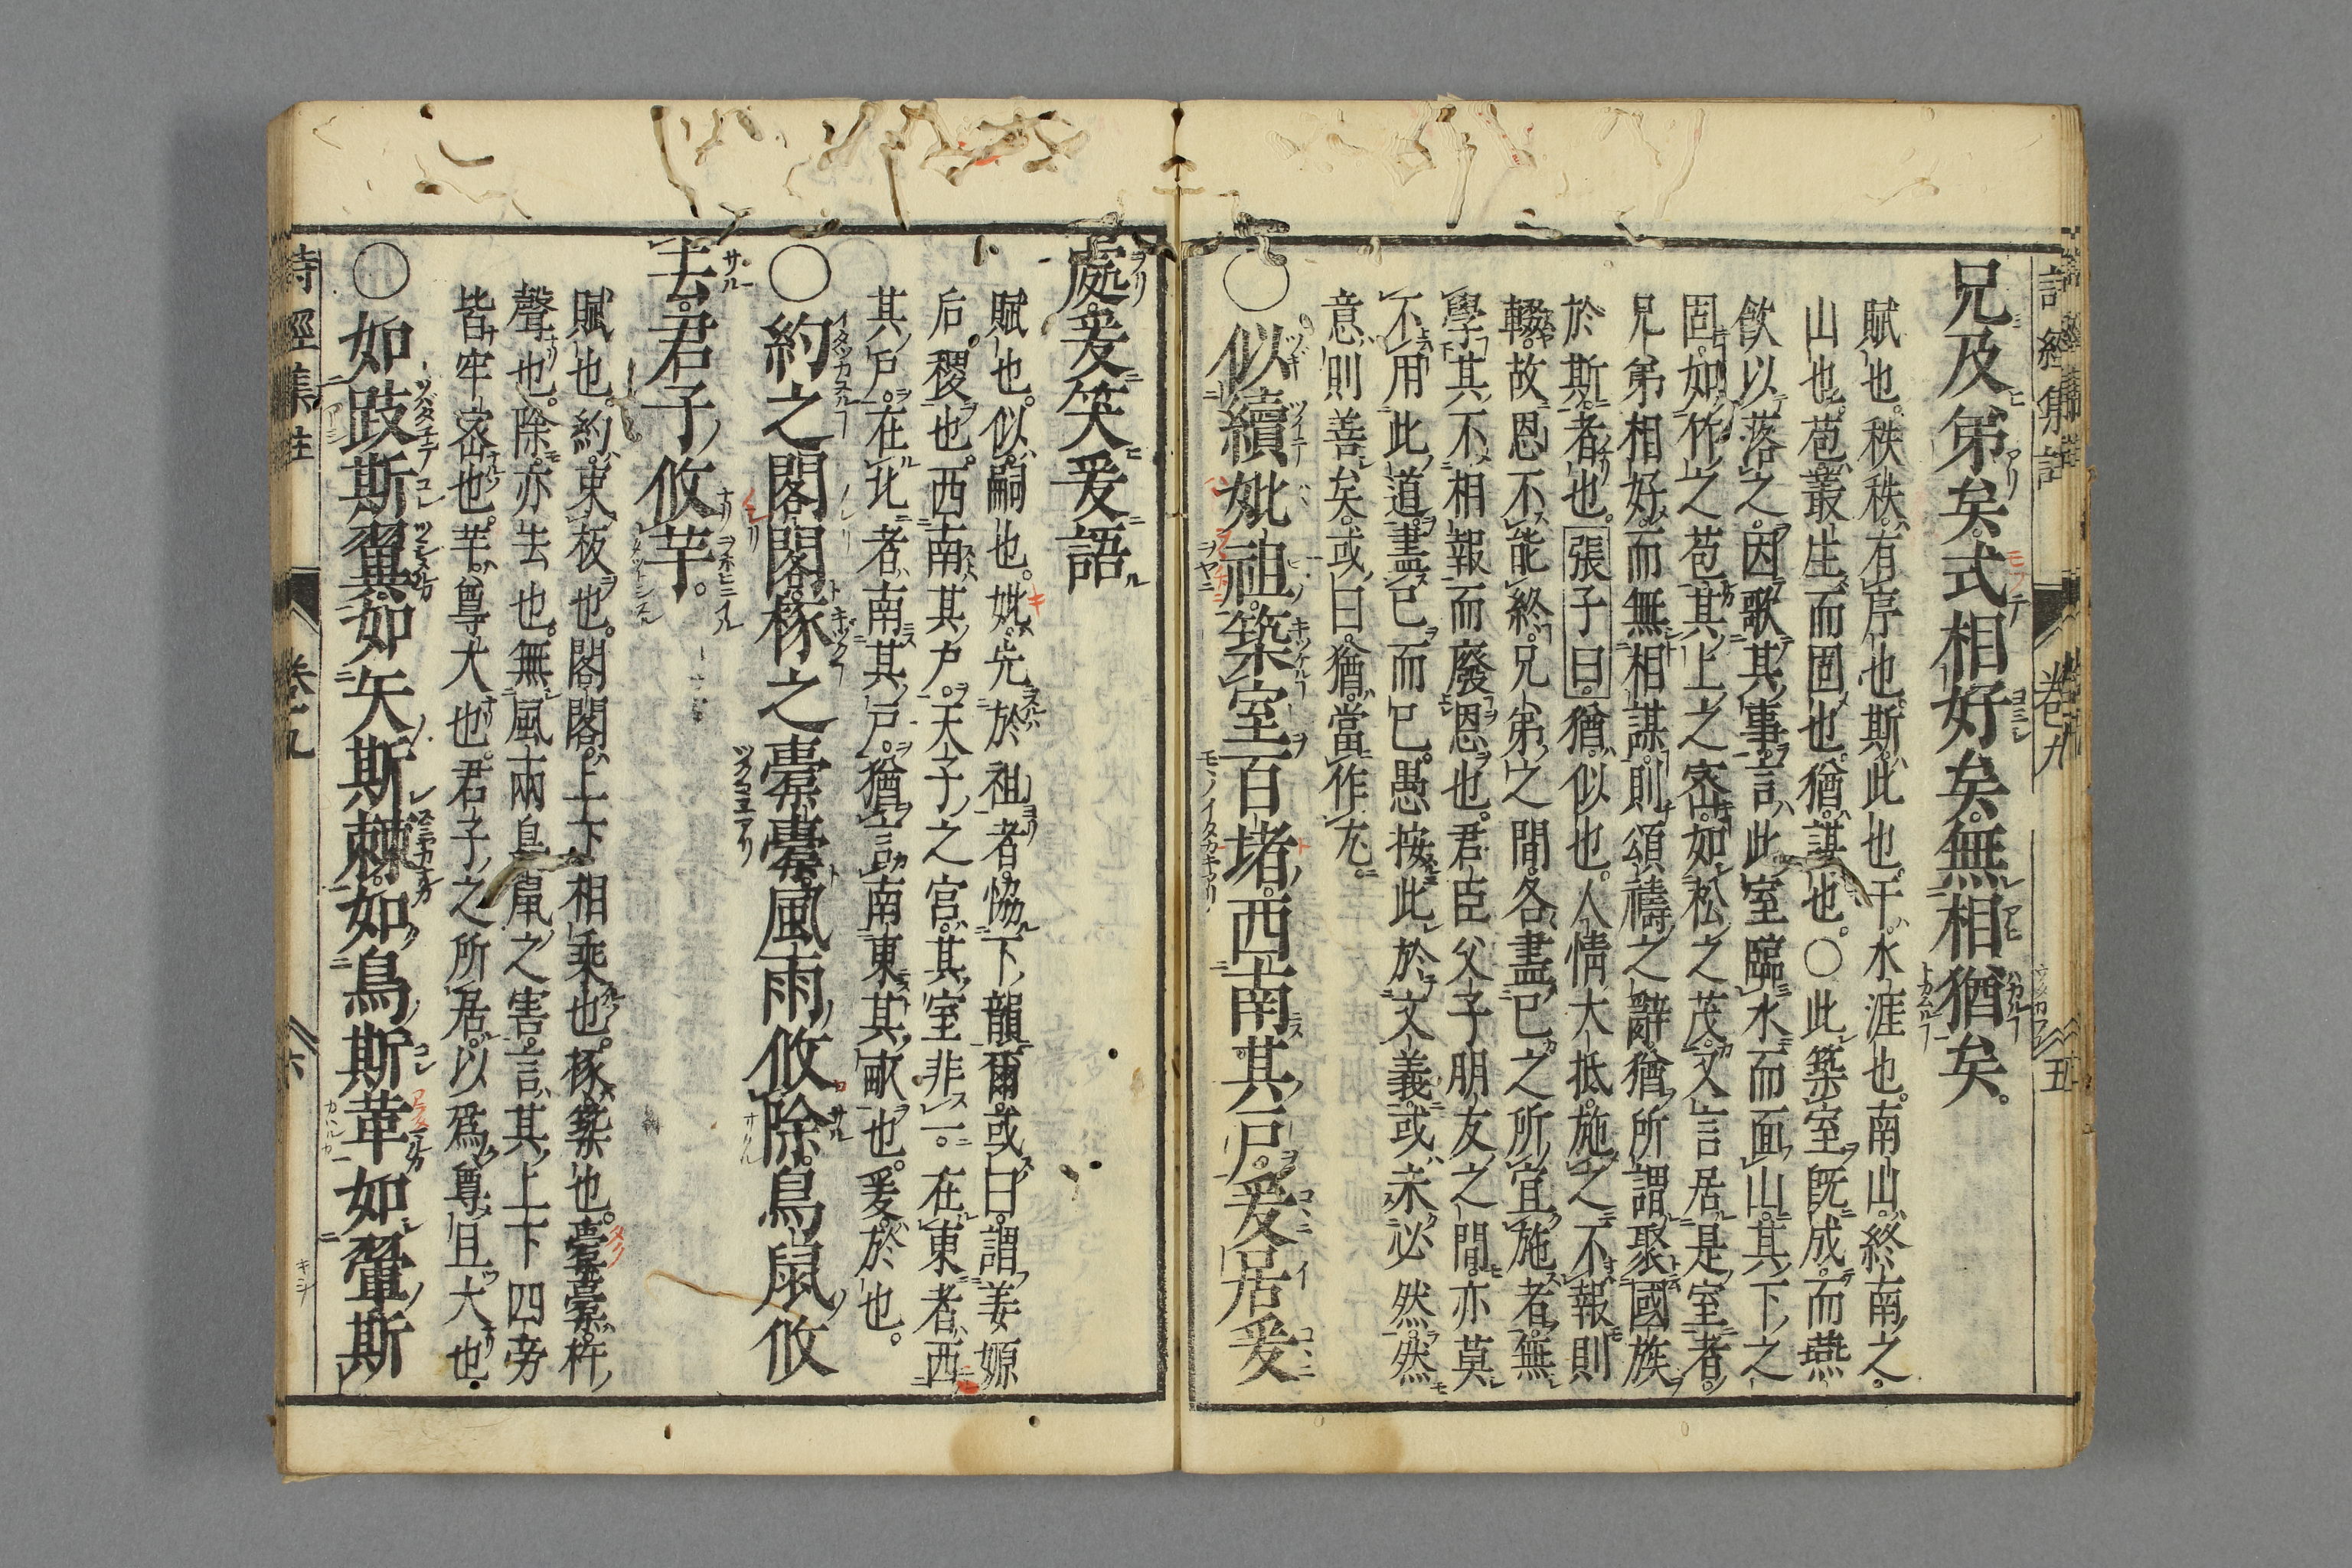 兄及弟矣。式相好矣。無相猶矣。
賦也。秩秩。有序也。斯。此也。干。水涯也。南山。終南之
山也。苞。叢生而固也。猶。謀也。○此築室既成。而燕
飲以落之。因歌其事。言此室臨水而面山。其下之
固。如竹之苞。其上之密。如松之茂。又言居是室者。
兄弟相好。而無相謀。則頌禱之辭。猶所謂聚國族
於斯。者也。張子曰。猶。似也。人情大抵。施之不報則
輟。故恩不能終。兄弟之間。各盡己之所宜施者。無
學其不相報而廢恩也。君臣父子朋友之間。亦莫
不用此道。盡己而已。愚按此於文義。或未必然。然
意則善矣。或曰。猶。當作尤。
○似續妣祖。築室百堵。西南其戶。爰居爰
處。爰笑爰語
賦也。似。嗣也。妣。先於祖者。協下韻爾。或曰。謂姜嫄
后稷也。西南其戶。天子之宮。其室非一。在東者。西
其戶。在北者。南其戶。猶言南東其畝也。爰。於也。
○約之閣閣。椓之橐橐。風雨攸除。鳥鼠攸
去。君子攸芋。
賦也。約。束板也。閣閣。上下相乘也。椓。築也。橐橐。杵
聲也。除。亦去也。無風雨鳥鼠之害。言其上下四旁
皆牢密也。芋。尊大也。君子之所居。以爲尊且大也。
○如跂斯翼。如矢斯棘。如鳥斯革。如翬斯
詩經集註
卷九
五
詩經集註
卷九
六